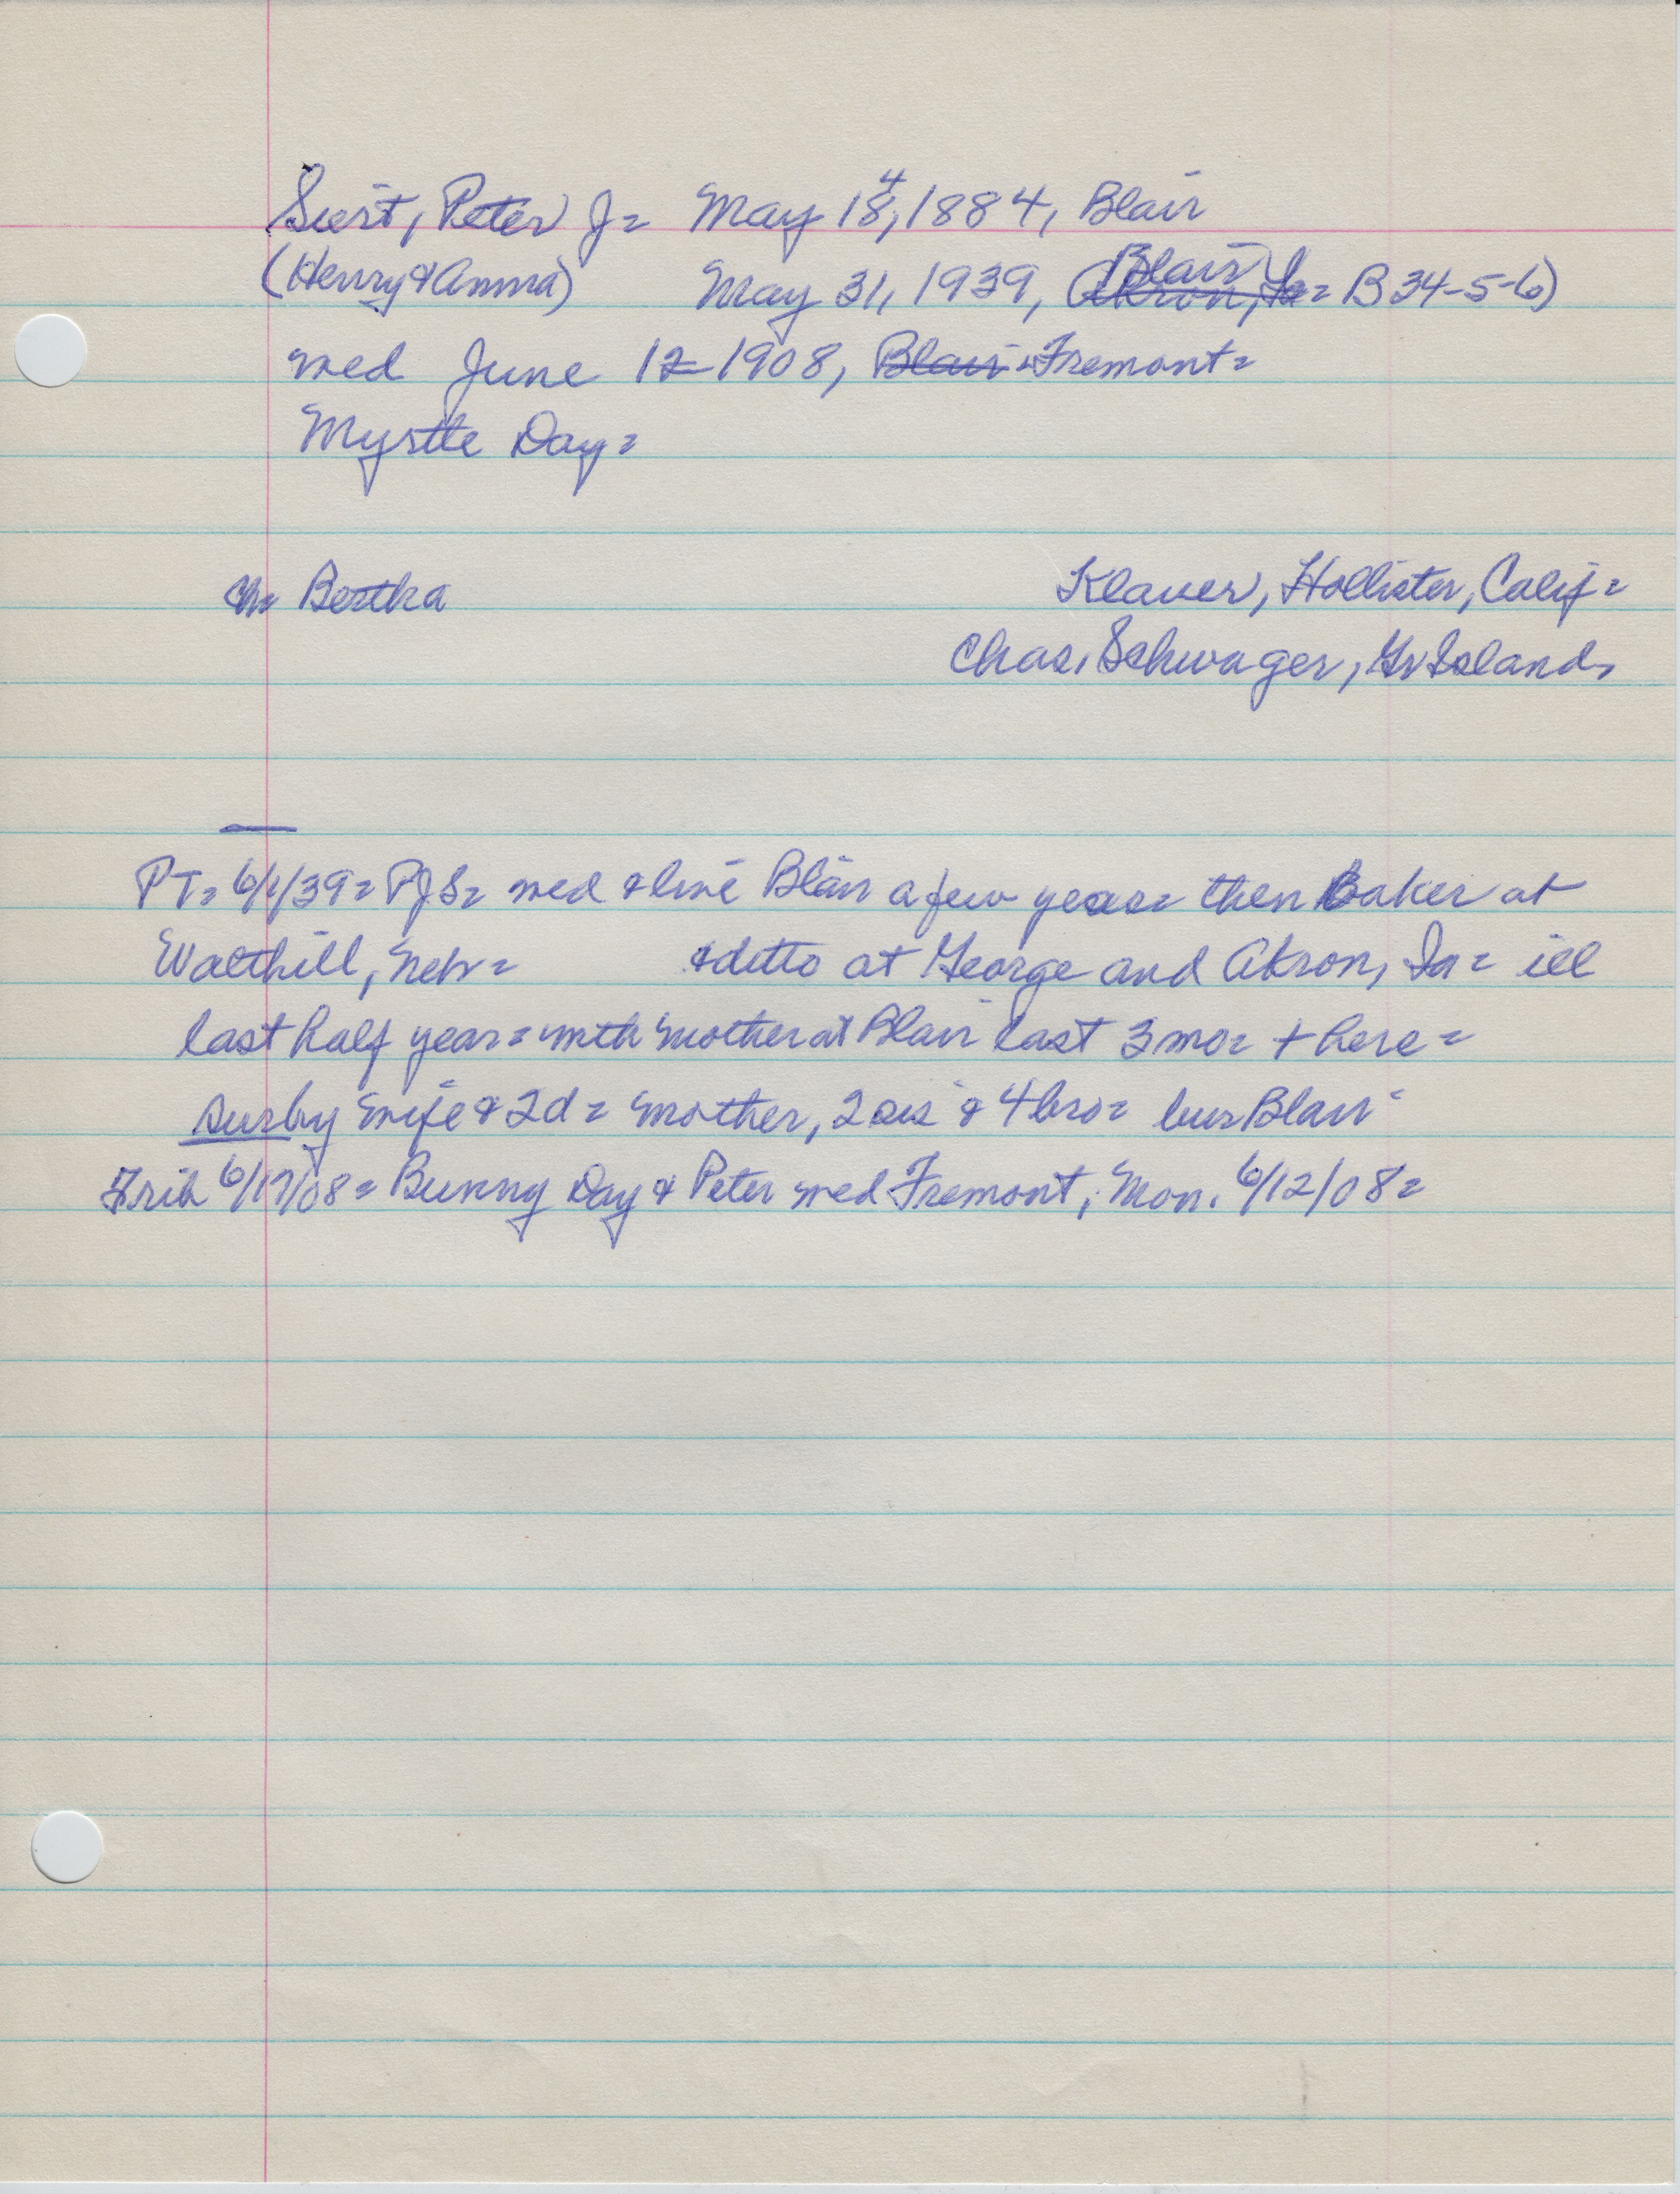 Suerst, Peter J= May 18, 4 1884, Blair
(Henry & Anna) May 31, 1939, Akron, Ia= Blair B 34-5-6)
wed June 12 1908, Blair Fremont=
Myrtle Day=
ch= Bertha Klauer, Hollister, Calif=
Chas. Schwager, Gr Island,
PT= 6/1/39= PJS= wed & live Blair a few years= then Baker at
Walthill, Neb= & ditto at George and Akron, Ia= ill
last half year= with mother at Blair last 3 mo= + here=
surby wife & 2d= mother, 2 sis & 4 bro= bur Blair
Trib 6/17/08= Bunny Day & Peter wed Fremont, Mon. 6/12/08=